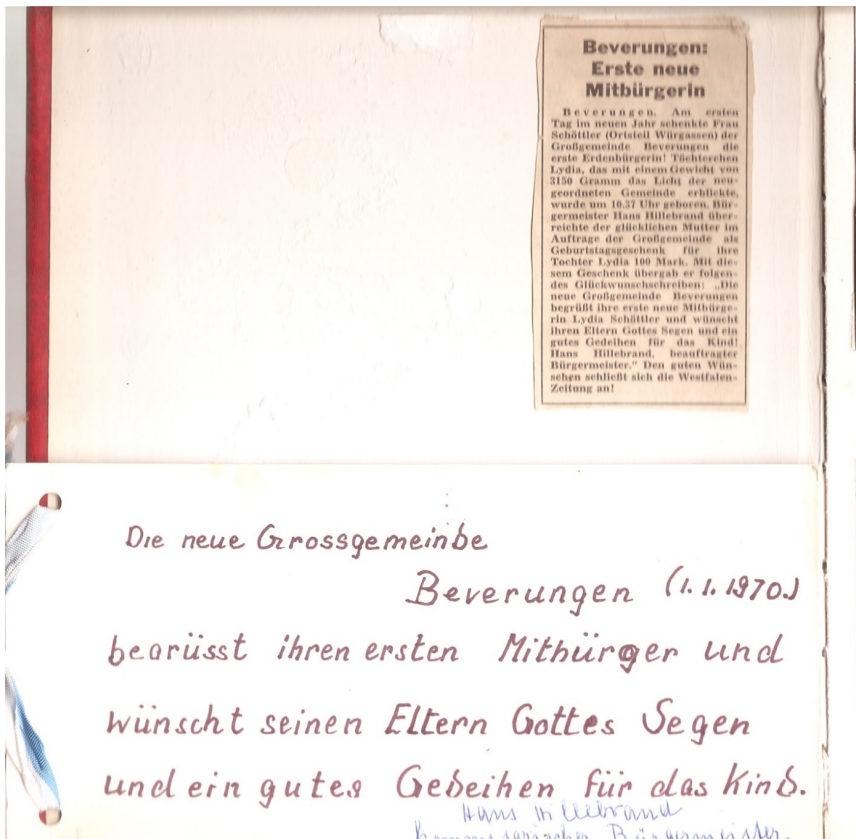 Beverungen:
Erste neue
Mitbürgerin
Beverungen. Am ersten
Tag im neuen Jahr schenkte Frau
Schöttler (Ortsteil Würgassen) der
Großgemeinde Beverungen die
erste Erdenbürgerin! Töchterchen
Lydia, das mit einem Gewicht von
3150 Gramm das Licht der neu-
geordneten Gemeinde erblickte,
wurde um 10.37 Uhr geboren. Bür-
germeister Hans Hillebrand über-
reichte der glücklichen Mutter im
Auftrage der Großgemeinde als
Geburtstagsgeschenk für ihre
Tochter Lydia 100 Mark. Mit die-
sem Geschenk übergab er folgen-
des Glückwunschschreiben: „Die
neue Großgemeinde Beverungen
begrüßt ihre erste neue Mitbürge-
rin Lydia Schöttler und wünscht
ihren Eltern Gottes Segen und ein
gutes Gedeihen für das Kind!
Hans Hillebrand, beauftragter
Bürgermeister.“ Den guten Wün-
schen schließt sich die Westfalen-
Zeitung an!
Die neue Grossgemeinde
Beverungen (1.1.1970.)
begrüsst ihren ersten Mitbürger und
wünscht seinen Eltern Gottes Segen
und ein gutes Gedeihen für das Kind.
Hans Hillebrand
kommissarischer Bürgermeister.